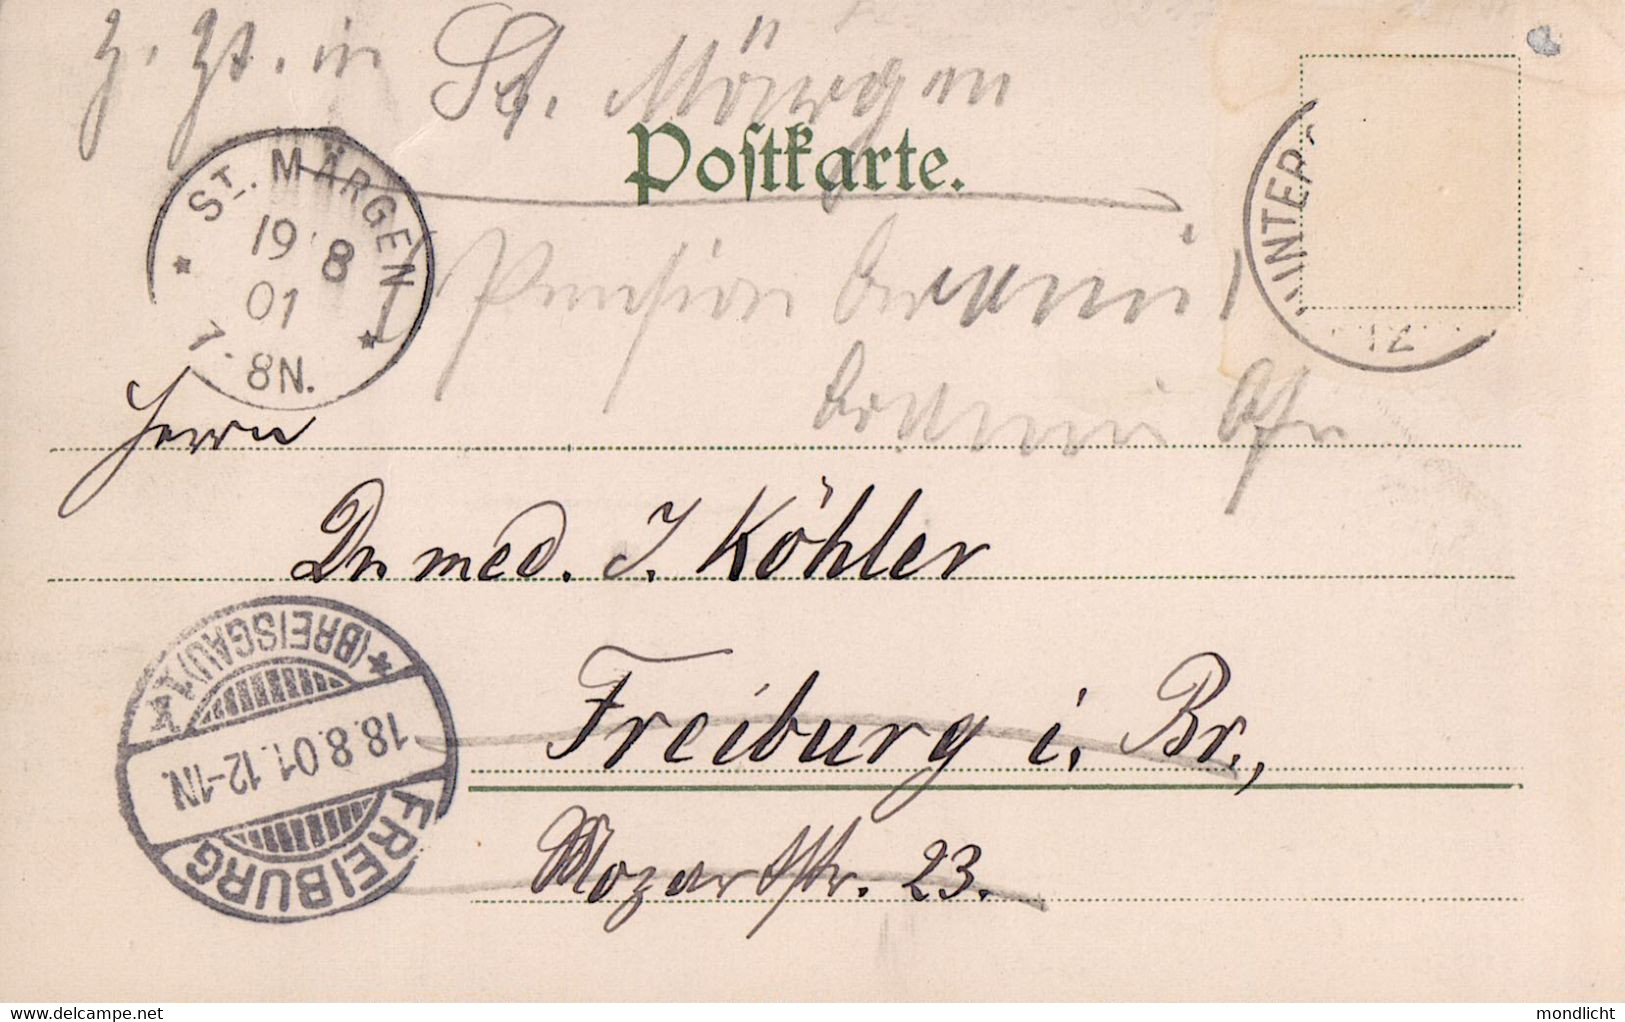 z. Zt. in St. Märgen
Postkarte.
ST. MÄRGEN
19 8
01
7-8N.
Pension
INTER
Herrn
Dr. med. J. Köhler
(BREISGAU) 1.
18.8.01.12-1N.
FREIBURG
Freiburg i. Br.,
Mozartstr. 23.
delcampe.net
mondlicht